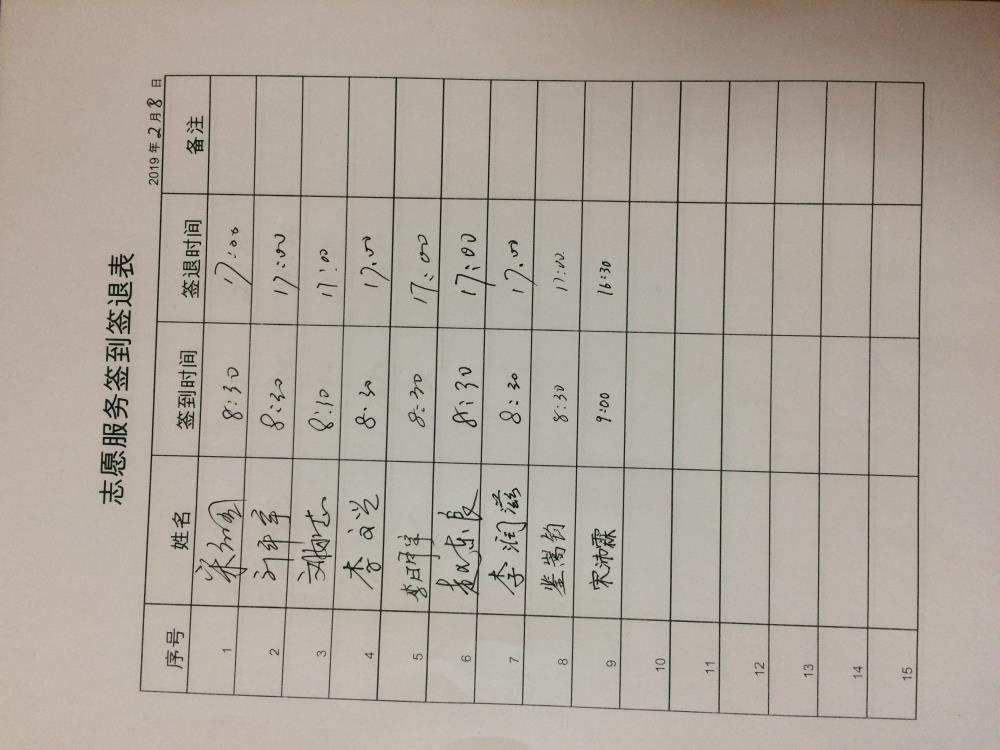 志愿服务签到签退表
2019 年 2 月 8 日
序号 姓名 签到时间 签退时间 备注
1 8:30 17:00
2 8:30 17:00
3 8:30 17:00
4 李文兴 8:30 17:00
5 8:30 17:00
6 8:30 17:00
7 李润滋 8:30 17:00
8 嵩钧 8:30 17:00
9 宋沛霖 9:00 16:30
10
11
12
13
14
15